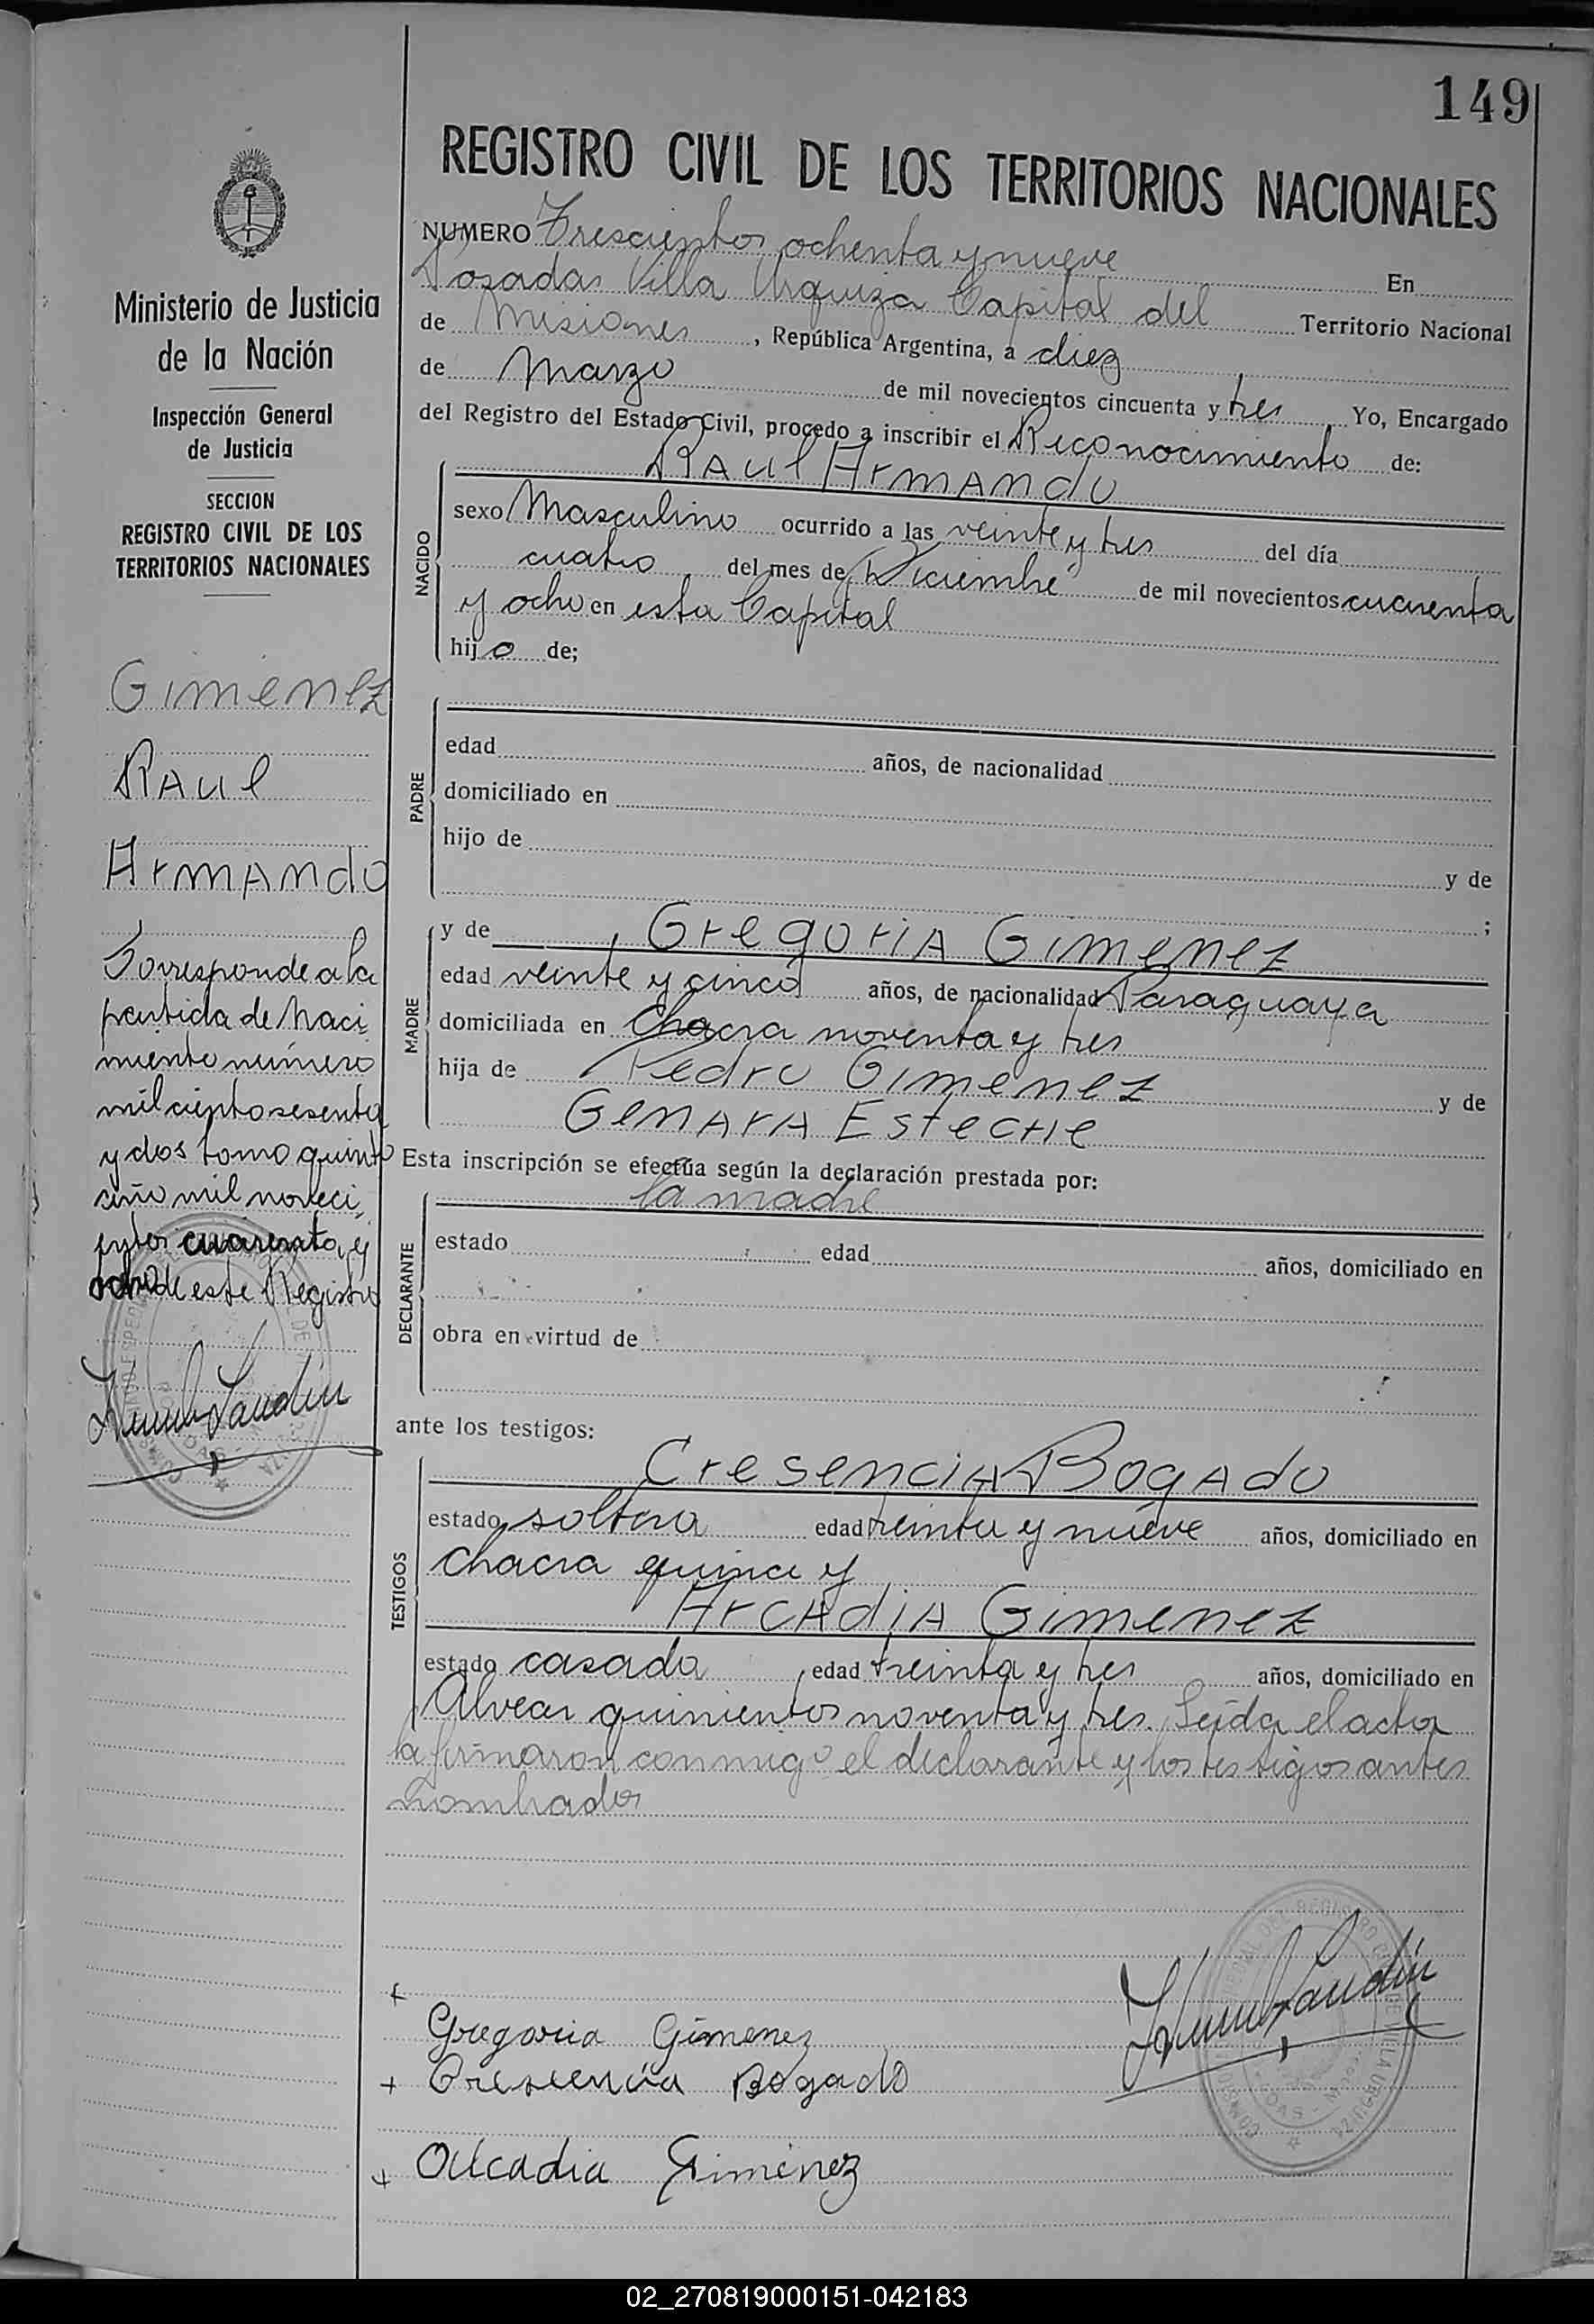 149
REGISTRO CIVIL DE LOS TERRITORIOS NACIONALES
Ministerio de Justicia
de la Nación
Inspección General
de Justicia
SECCION
REGISTRO CIVIL DE LOS
TERRITORIOS NACIONALES
Gimenez
Raul
Armando
Corresponde a la
partida de Naci
miento número
mil ciento sesenta
y dos tomo quinto
año mil noveci
entos cuarenta y
ocho de este Registro
NUMERO Trescientos ochenta y nueve En
Posadas Villa Urquiza Capital del Territorio Nacional
de Misiones, República Argentina, a diez
de Marzo de mil novecientos cincuenta y tres Yo, Encargado
del Registro del Estado Civil, procedo a inscribir el Reconocimiento de:
Raul Armando
NACIDO
sexo Masculino ocurrido a las veinte y tres del día
cuatro del mes de Diciembre de mil novecientos cuarenta
y ocho en esta Capital
hijo de;
PADRE
edad años, de nacionalidad
domiciliado en
hijo de
y de
;
MADRE
y de Gregoria Gimenez
edad veinte y cinco años, de nacionalidad Paraguaya
domiciliada en Chacra noventa y tres
hija de Pedro Gimenez y de
Genara Esteche
Esta inscripción se efectúa según la declaración prestada por:
la madre
DECLARANTE
estado edad años, domiciliado en
obra en virtud de
ante los testigos:
TESTIGOS
Cresencia Bogado
estado soltera edad treinta y nueve años, domiciliado en
chacra quince y
Arcadia Gimenez
estado casada edad treinta y tres años, domiciliado en
Alvear quinientos noventa y tres. Leída el acta
la firmaron conmigo el declarante y los testigos antes
nombrados
Gregoria Gimenez
Cresencia Bogado
Arcadia Gimenez
02_270819000151-042183